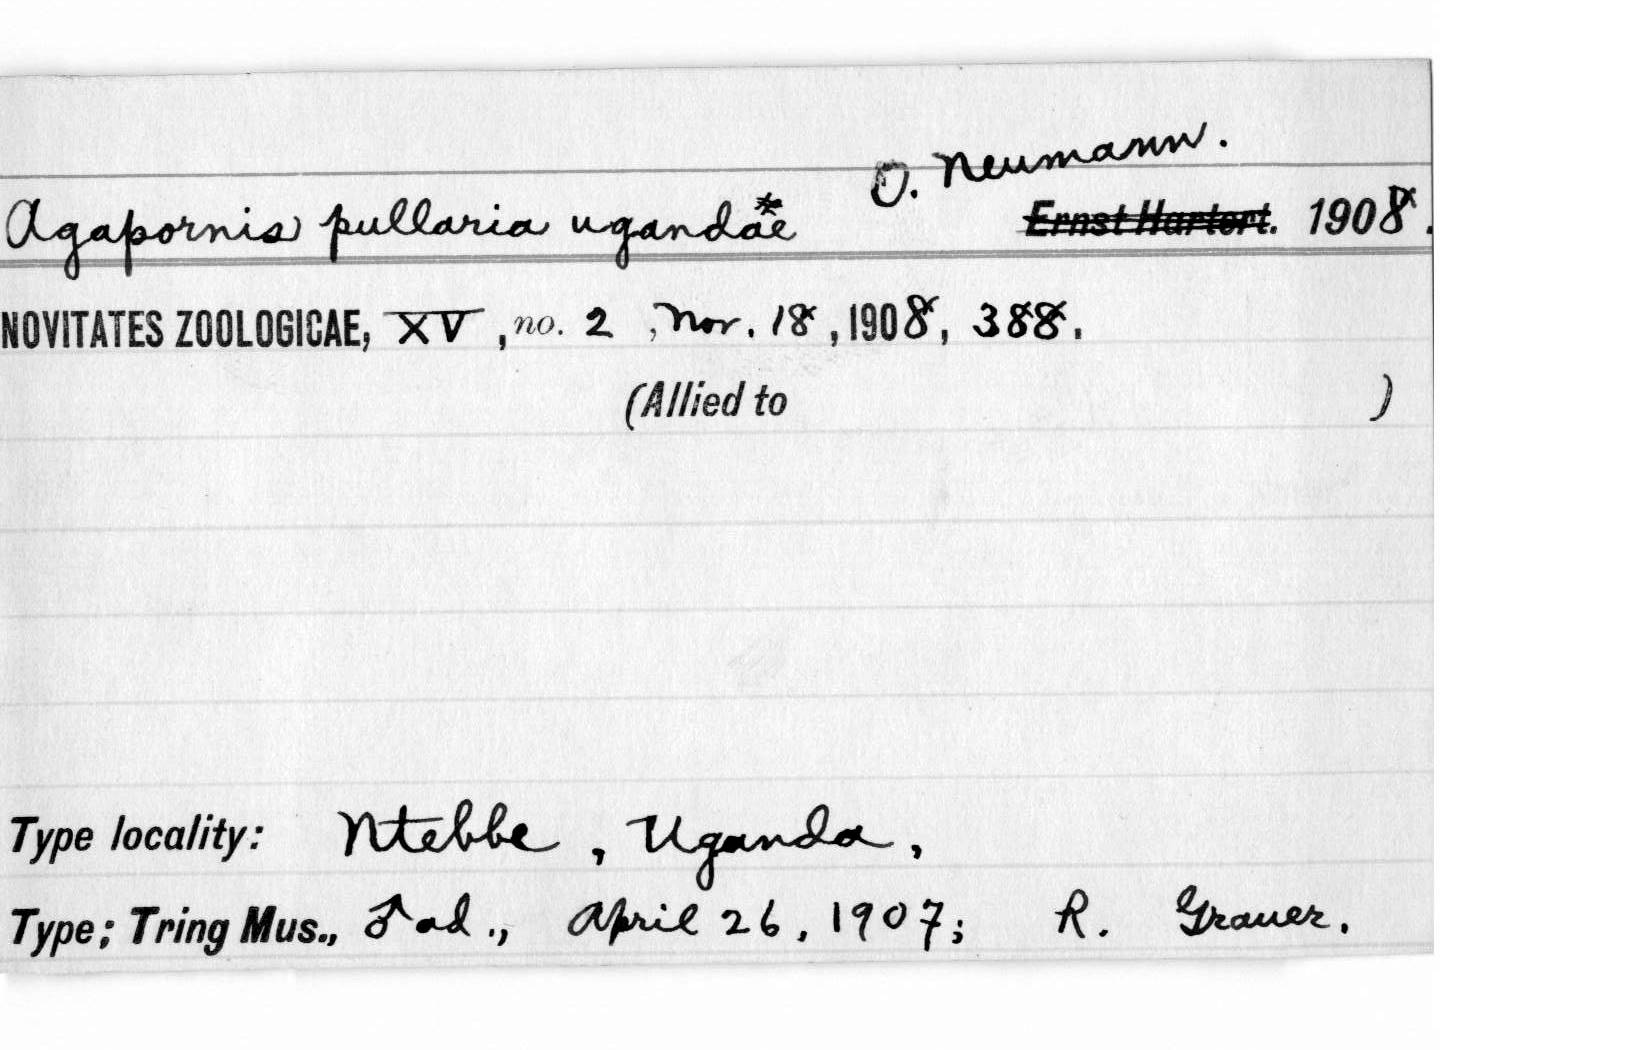 O. Neumann.
Agapornis pullaria ugandae Ernst Hartert. 1908.
NOVITATES ZOOLOGICAE, XV, no. 2, Nov. 18, 1908, 388.
(Allied to )
Type locality: Ntebbe, Uganda,
Type; Tring Mus., ♂ ad., April 26, 1907; R. Grauer.